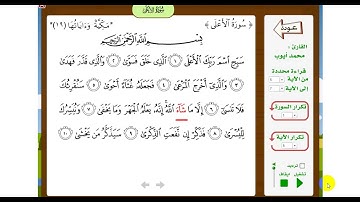 سُورَةُ الأَعْلَى
﴿ سُورَةُ الأَعْلَى ﴾ "مَكِيَّة وَءَايَاتُهَا (١٩)"
بِسْمِ اللَّهِ الرَّحْمَنِ الرَّحِيمِ
سَبِّحِ اسْمَ رَبِّكَ الْأَعْلَى ١ الَّذِي خَلَقَ فَسَوَّى ٢ وَالَّذِي قَدَّرَ فَهَدَى
٣ وَالَّذِي أَخْرَجَ الْمَرْعَى ٤ فَجَعَلَهُ غُثَاءً أَحْوَى ٥ سَنُقْرِئُكَ
فَلَا تَنسَى ٦ إِلَّا مَا شَاءَ اللَّهُ إِنَّهُ يَعْلَمُ الْجَهْرَ وَمَا يَخْفَى ٧ وَنُيَسِّرُكَ
لِلْيُسْرَى ٨ فَذَكِّرْ إِن نَّفَعَتِ الذِّكْرَى ٩ سَيَذَّكَّرُ مَن يَخْشَى ١٠
عــودة
القارئ :
محمد أيوب
قراءة محددة
من الآية
إلى الآية
تكرار السورة
تكرار الآية
ترديد
تشغيل
إيقاف